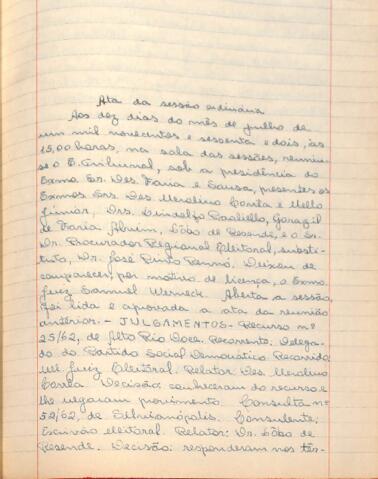 Ata da sessão ordinária
Aos dez dias do mês de julho de
um mil novecentos e sessenta e dois, às
15,00 horas, na sala das sessões, reuniu-
se o E. Tribunal, sob a presidência do
Exmo. Sr. Des. Faria e Sousa, presentes os
Exmos. Srs. Des. Merolino Corrêa e Mello
Júnior, Drs. Lindolfo Paoliello,
de Faria Alvim, Lôbo de Resende, e o Sr.
Dr. Procurador Regional Eleitoral, substi-
tuto, Dr. José Pinto Rennó. Deixou de
comparecer, por motivo de licença, o Exmo.
Juiz Samuel Werneck. Aberta a sessão,
foi lida e aprovada a ata da reunião
anterior. - JULGAMENTOS - Recurso nº
25/62, de Alto Rio Doce. Recorrente: Delega-
do do Partido Social Democrático. Recorrido:
M. Juiz Eleitoral. Relator: Des. Merolino
Corrêa. Decisão: conheceram do recurso e
lhe negaram provimento. Consulta nº
52/62, de Silvianópolis. Consulente:
Escrivão eleitoral. Relator: Dr. Lôbo de
Resende. Decisão: responderam nos têr-